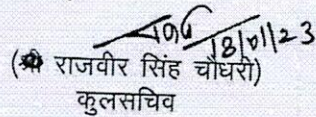 18/01/23
(श्री राजवीर सिंह चौधरी)
कुलसचिव